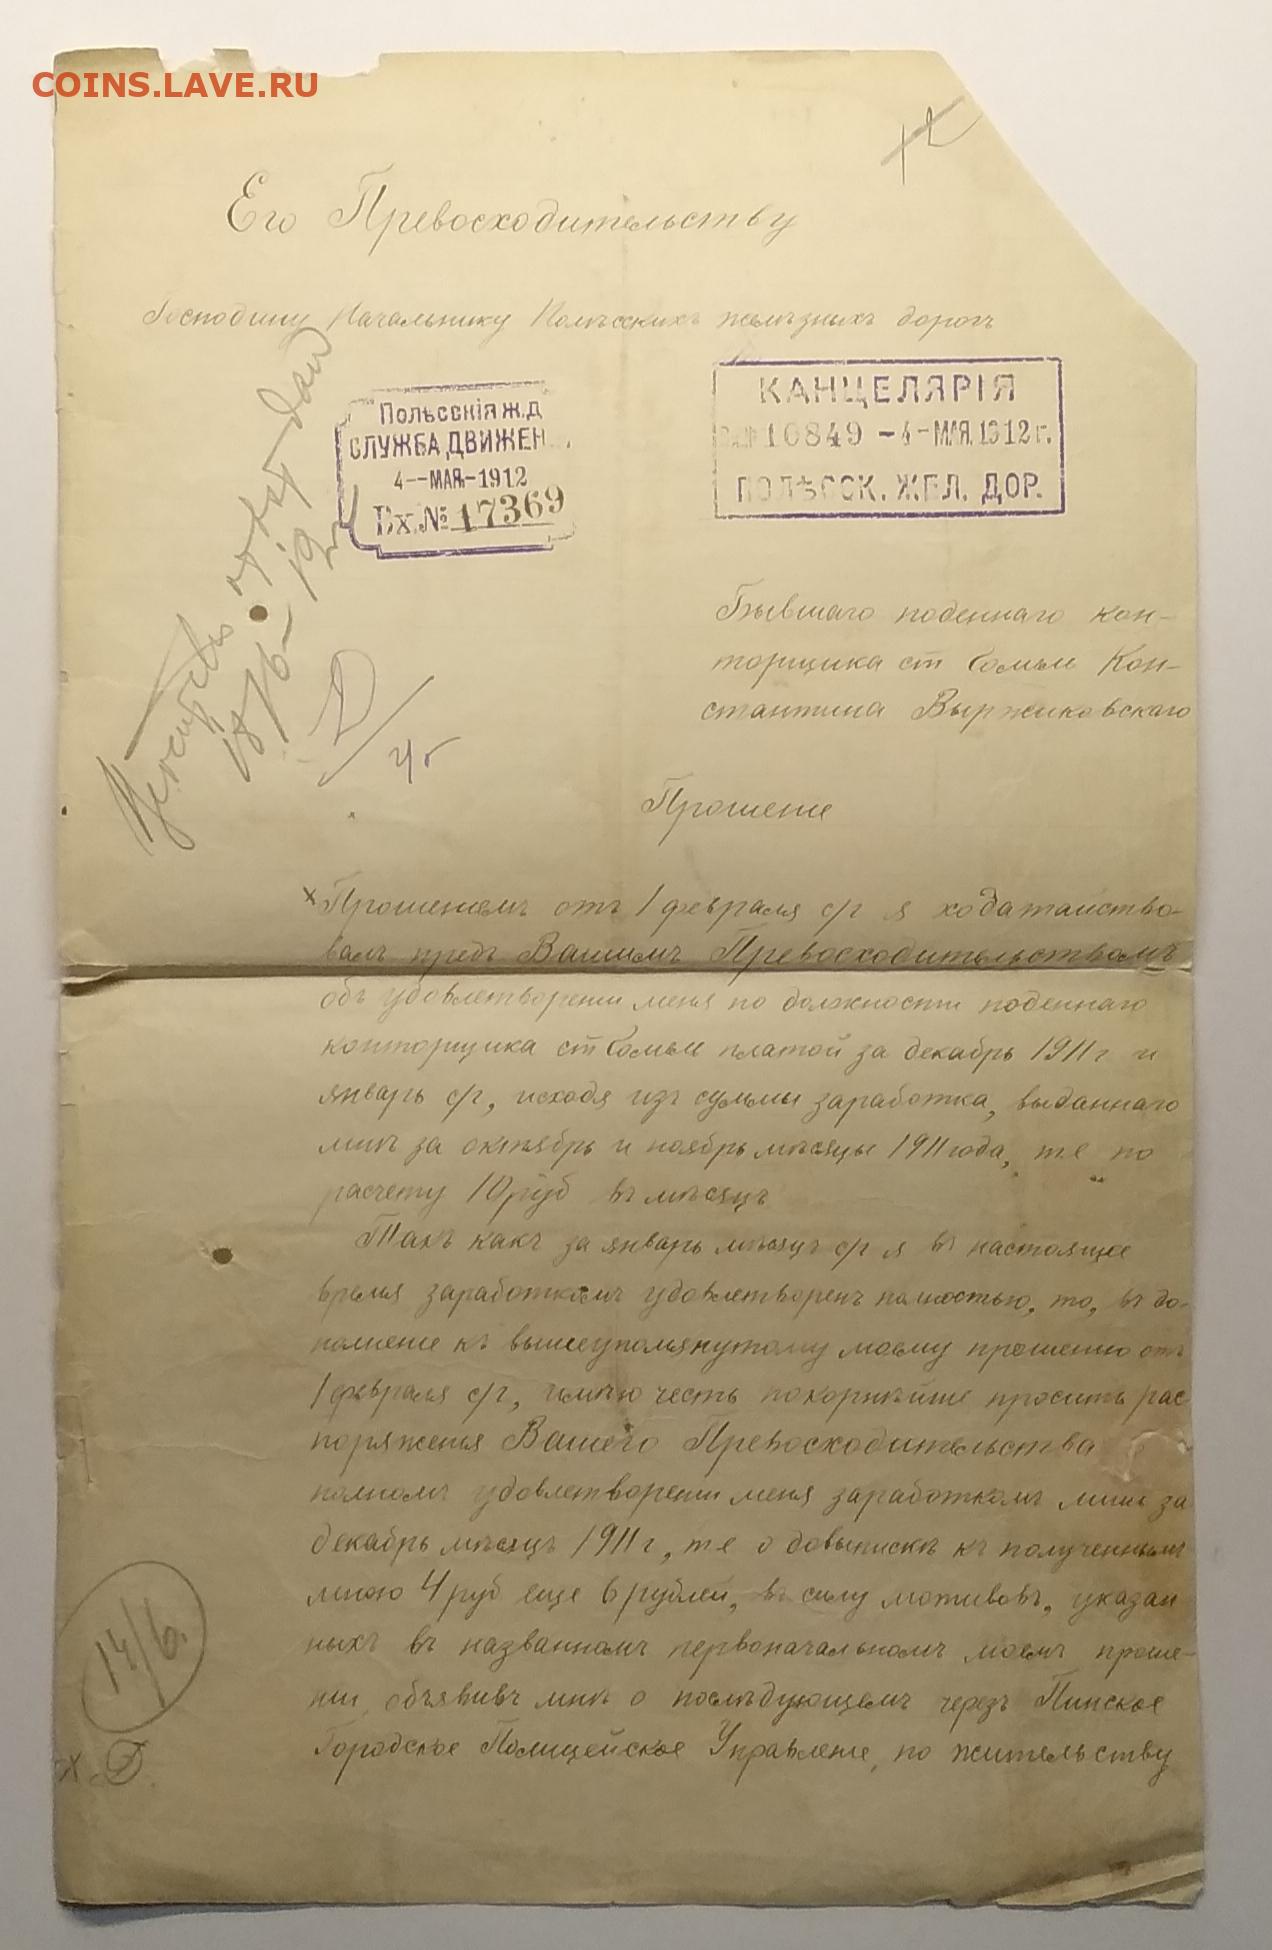 COINS.LAVE.RU
Его Превосходительству
Господину Начальнику Полѣсскихъ желѣзныхъ дорогъ
КАНЦЕЛЯРІЯ
10849 - 4 - МАЯ.1912 г.
ПОЛѢССК. ЖЕЛ. ДОР.
ПОЛѢССКІЯ Ж.Д
СЛУЖБА ДВИЖЕН
4 -- МАЯ. - 1912
Вх.№ 17369
18/6 -
Бывшаго поденнаго кон-
торщика ст Сомы Кон-
стантина Выржиковскаго
Прошеніе
Прошеніемъ отъ 1 февраля с/г я ходатайство-
валъ предъ Вашимъ Превосходительствомъ
объ удовлетвореніи меня по должности поденнаго
конторщика ст Сомы платой за декабрь 1911 г и
январь с/г, исходя изъ суммы заработка, выданнаго
мнѣ за октябрь и ноябрь мѣсяцы 1911 года, т.е. по
расчету 10 руб въ мѣсяцъ
Такъ какъ за январь мѣсяцъ с/г я въ настоящее
время заработкомъ удовлетворенъ полностью, то, въ до-
полненіе къ вышеупомянутому моему прошенію отъ
1 февраля с/г, имѣю честь покорнѣйше просить рас
поряженья Вашего Превосходительства о
полномъ удовлетвореніи меня заработкомъ лишь за
декабрь мѣсяцъ 1911 г, т.е о довыпискѣ къ полученнымъ
мною 4 руб еще 6 рублей, въ силу мотивовъ, указан
ныхъ въ названномъ первоначальномъ моемъ проше-
ніи, объявивъ мнѣ о послѣдующемъ черезъ Пинское
Городское Полицейское Управленіе, по жительству
14/6.